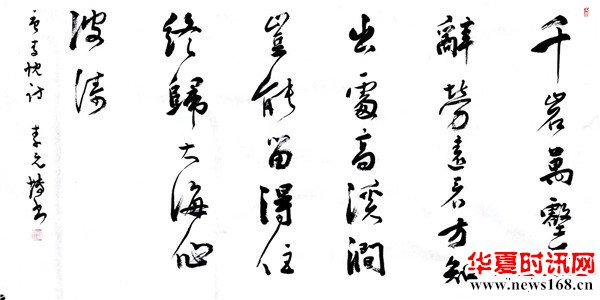 千岩萬壑
辭勞遠看方知
出處高溪澗
豈能留得住
終歸大海作
波濤
忱詩 李元 書
华夏时讯网
www.news168.cn